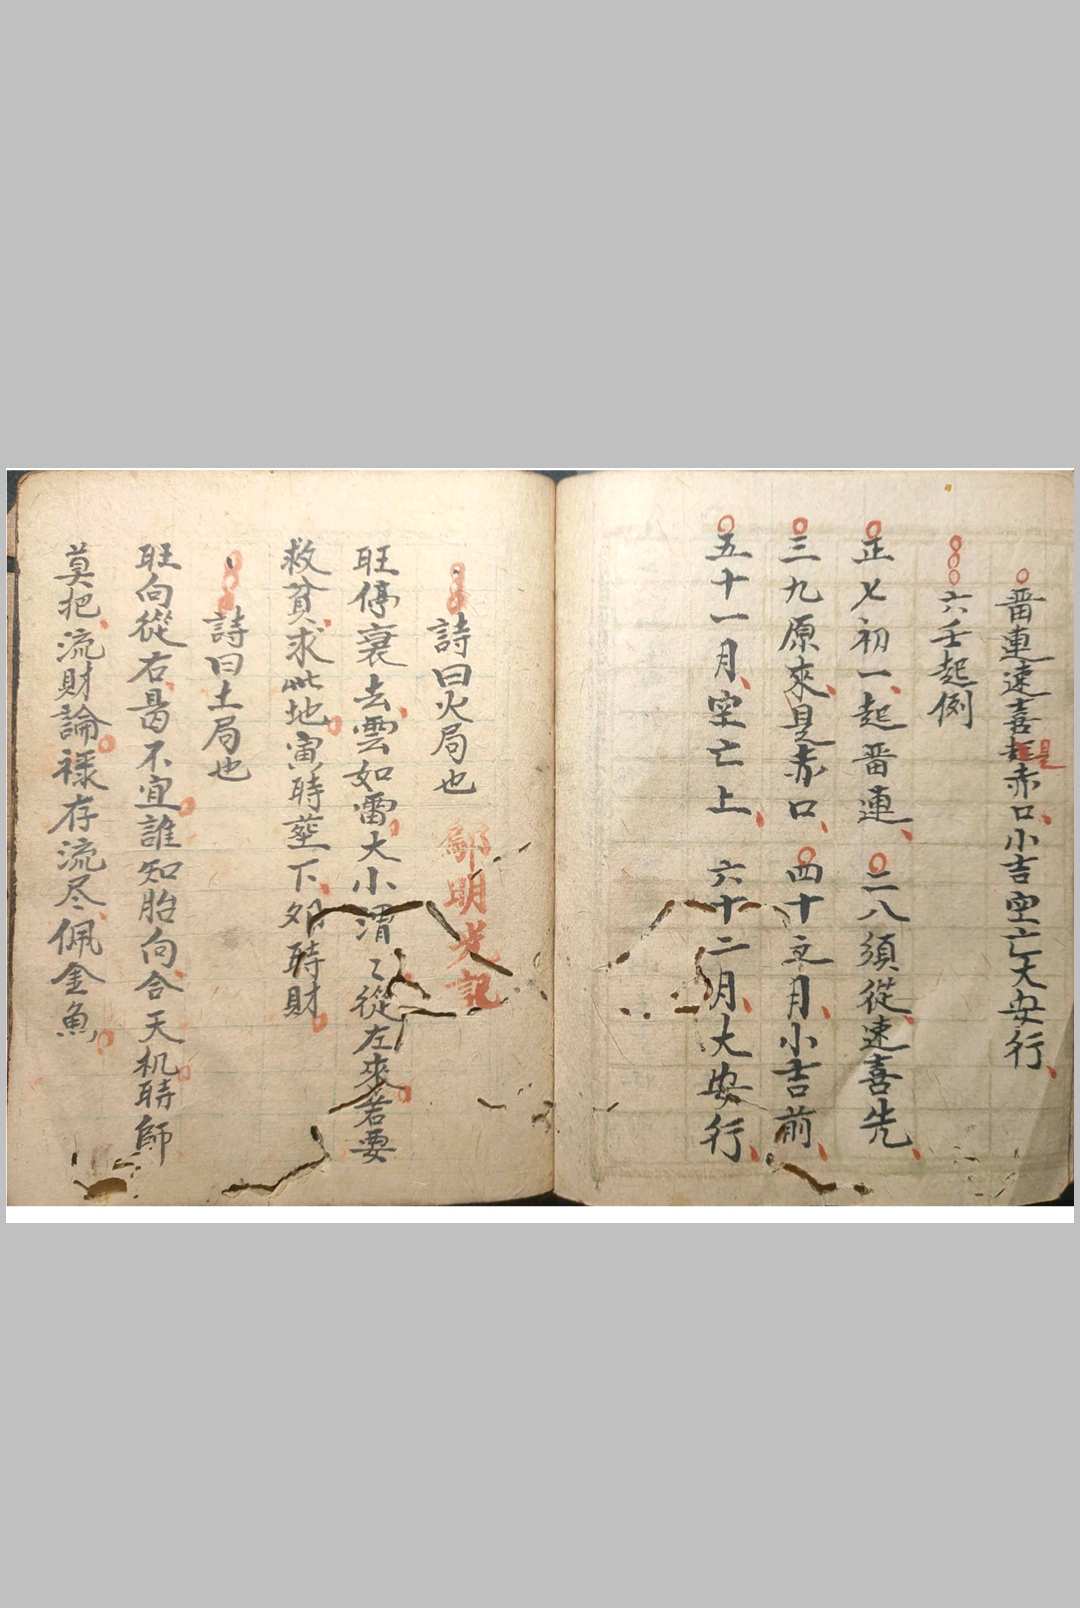 畨連速喜是赤口小吉空亡大安行
六壬起例
正七初一起畨連二八須從速喜先
三九原來見赤口四十之月小吉前
五十一月空亡上六十二月大安行
詩曰火局也
明光記
旺停衰去雲如雷大小渭〻從左來若要
救貧求此地寅時塟下夘時財
詩曰土局也
旺向從右曷不宜誰知胎向合天机時師
莫把流財論祿存流尽佩金魚